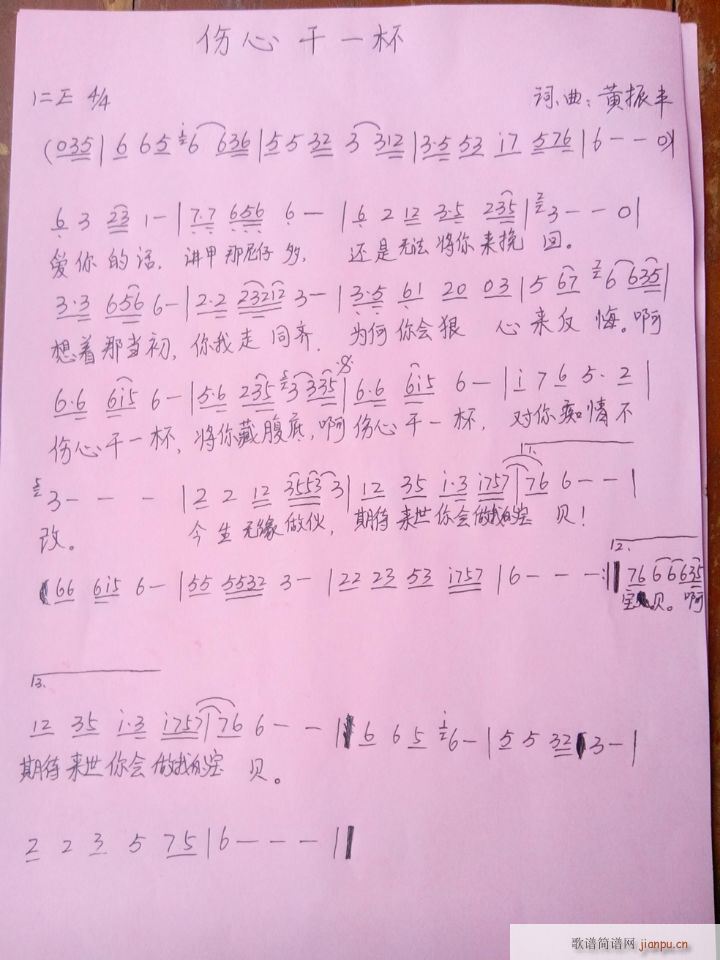 伤心干一杯
1=E 4/4 词.曲:黄振丰
(035|6 65 i6 636|55 32 3 312|3·5 53 i7 576|6--0)
6 3 23 1-|7·7 656 6-|6 2 12 3·5 235|2 3--0|
爱你的话,讲甲那尼仔多,还是无法将你来挽回。
3·3 656 6-|2·2 23212 3-|3·5 61 20 03|5 67 2 6 635|
想着那当初,你我走同齐.为何你会狠心来反悔。啊
6·6 6i5 6-|5·6 235 5 3 335|6·6 6i5 6-|i 7 6 5·2|
伤心干一杯,将你藏腹底,啊伤心干一杯,对你痴情不
1.
5 3---|2 2 12 3553 3|12 35 i·3 i757|76 6--|
改。今生无缘做伙,期待来世你会做我的宝贝!
66 6i5 6-|55 5532 3-|22 23 53 i757|6---:|
12.
76 6 6 635
宝贝。啊
13.
12 35 i·3 i757|76 6--|6 6 5 i 6-|5 5 32 3-|
期待来世你会做我的宝贝。
2 2 3 5 75|6---||
歌谱简谱网 jianpu.cn